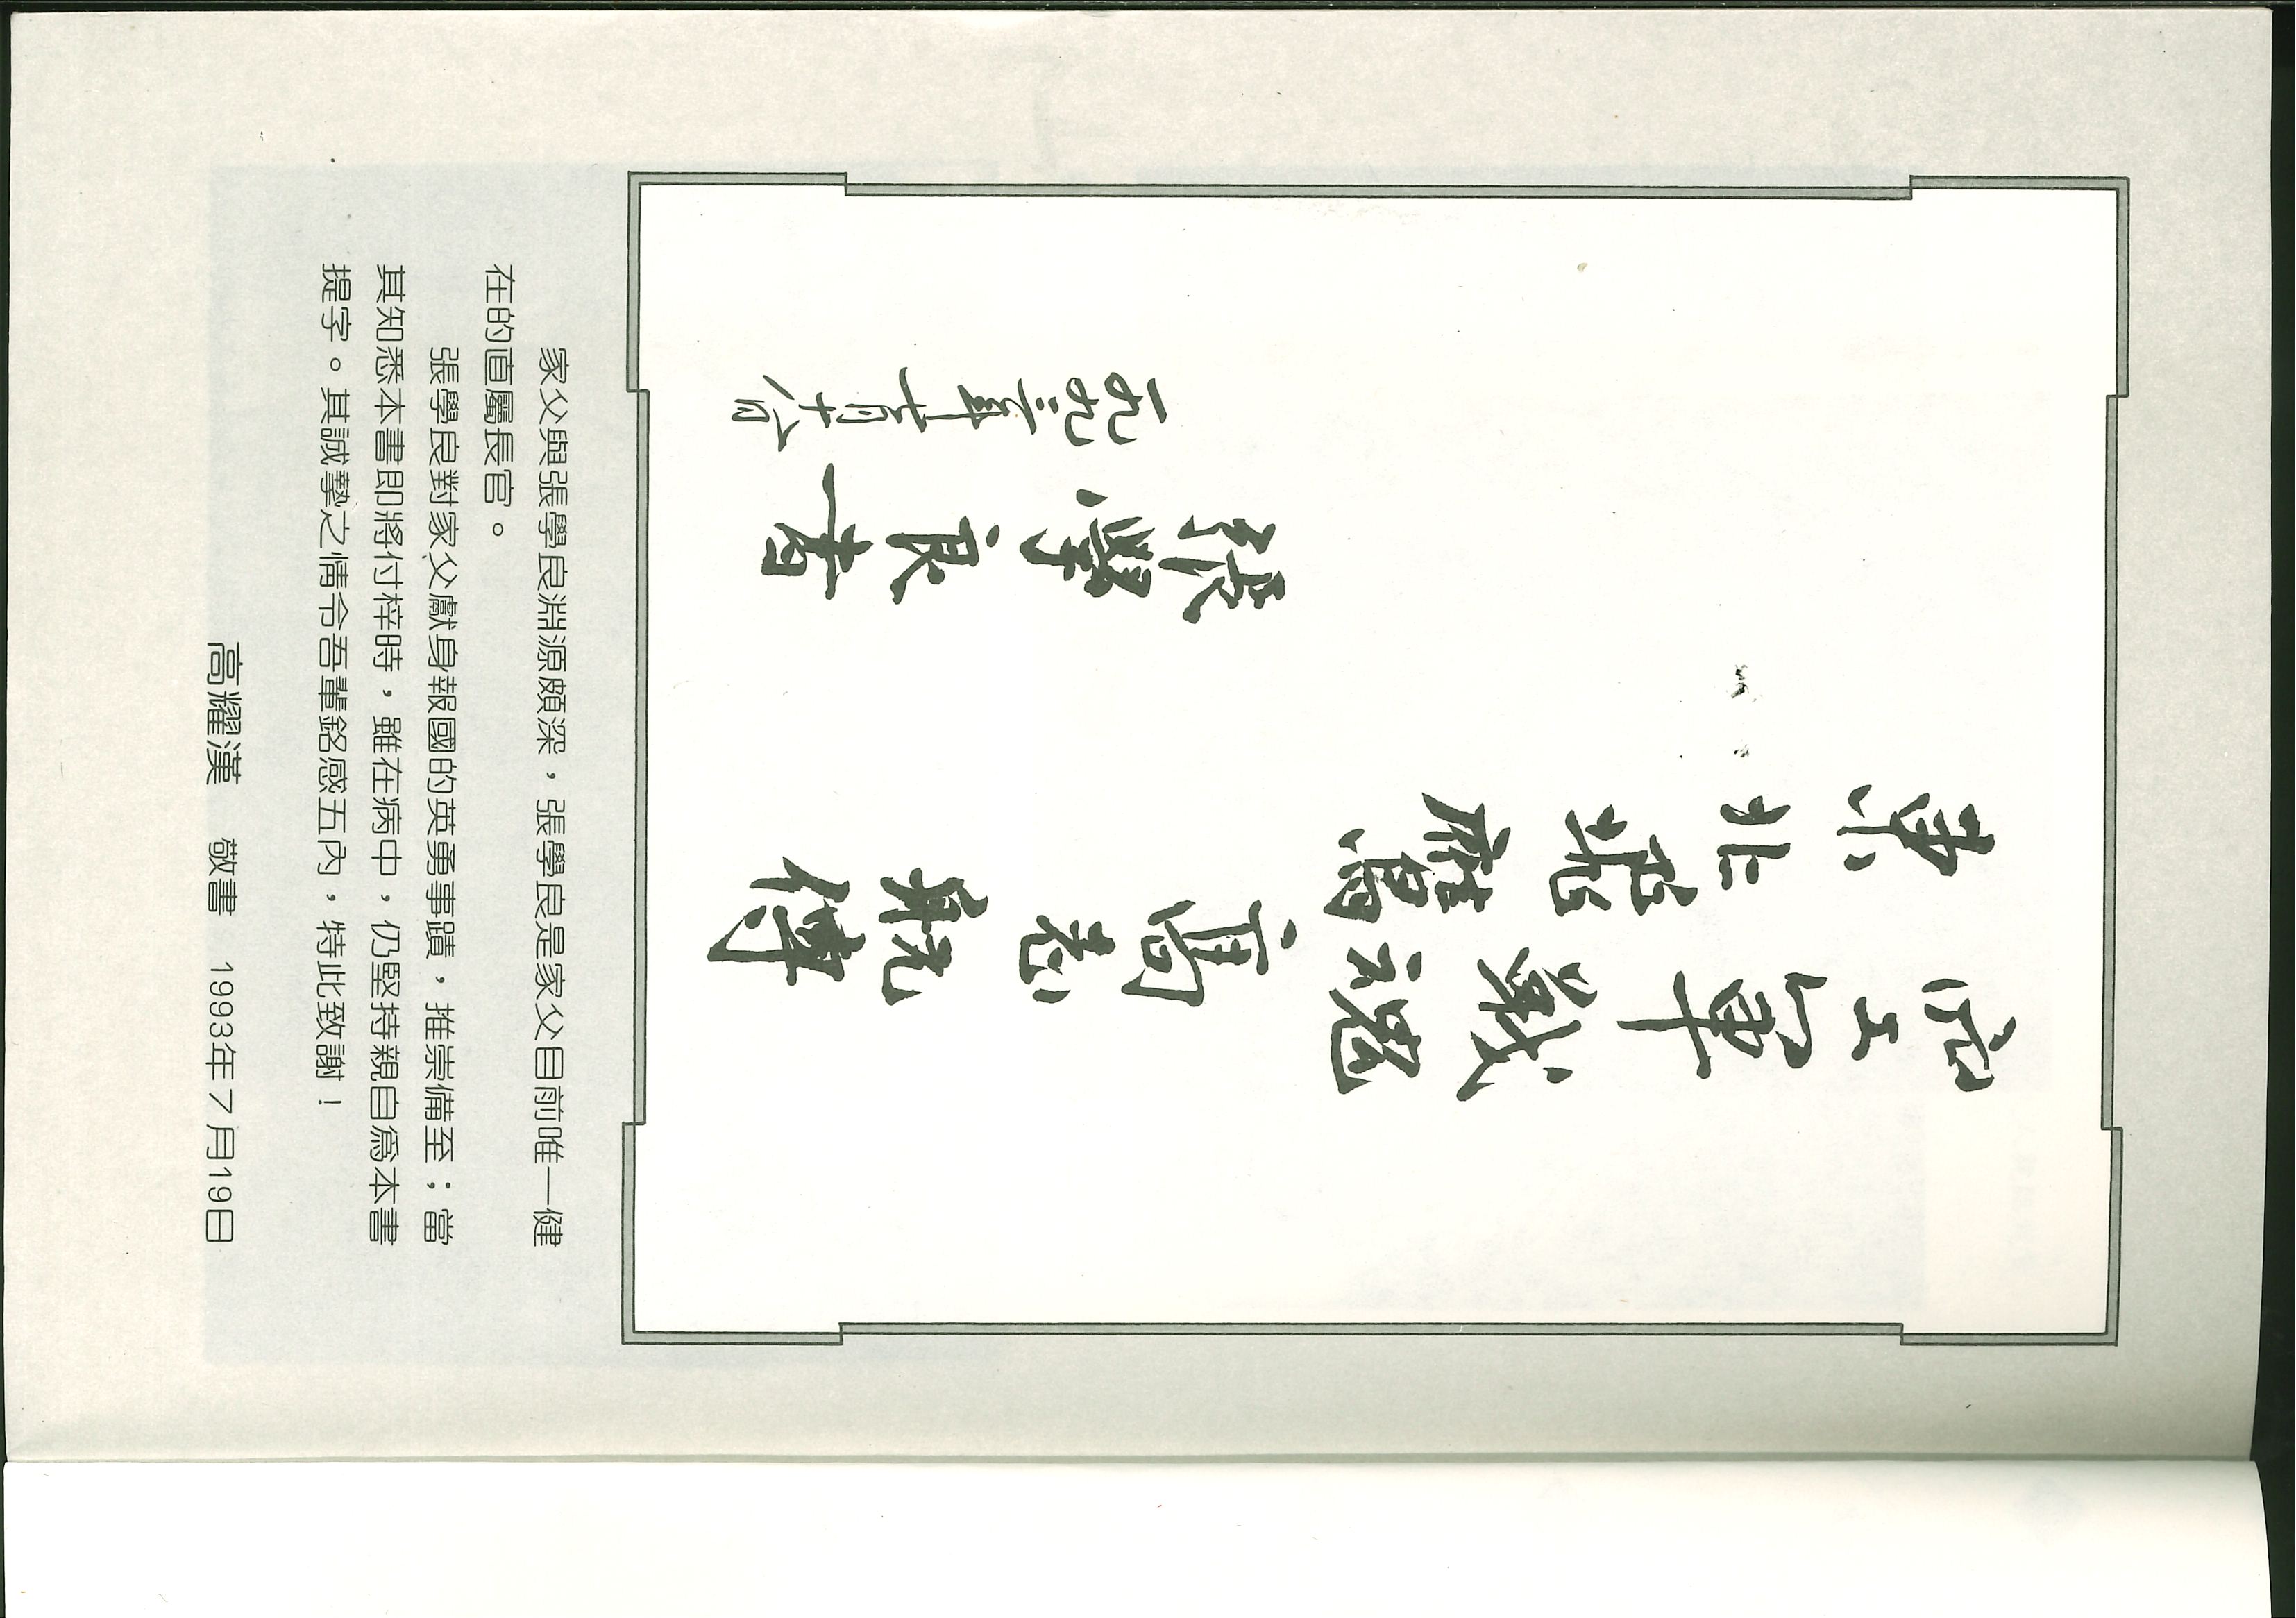 空軍戰魂
東北飛鷹
高志航傳
張學良書
一九九三年七月十八日
家父與張學良淵源頗深，張學良是家父目前唯一健
在的直屬長官。
張學良對家父獻身報國的英勇事蹟，推崇備至；當
其知悉本書即將付梓時，雖在病中，仍堅持親自為本書
提字。其誠摯之情令吾輩銘感五內，特此致謝！
高耀漢　敬書　1993年7月19日